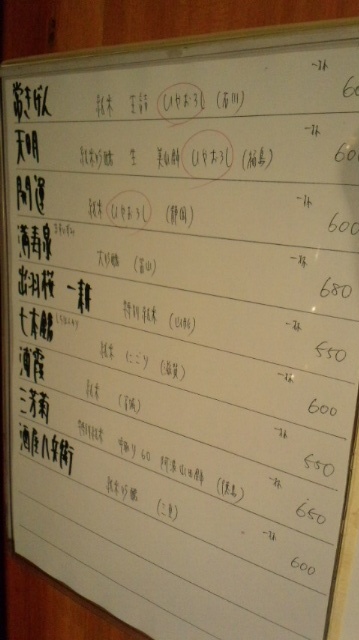 常きげん 純米 生詰 ひやおろし (石川) 一杯 60
天明 純米吟醸 生 美山錦 ひやおろし (福島) 一杯 600
開運 純米 ひやおろし (静岡) 一杯 600
満寿泉 大吟醸 (富山) 一杯 680
出羽桜 一耕 特別純米 (山形) 一杯 550
七本鎗 しちほんやり 純米 にごり (滋賀) 一杯 600
浦霞 純米 (宮城) 一杯 550
三芳菊 特別純米 中取り 60 阿波山田錦 (徳島) 一杯 650
酒屋八兵衛 純米吟醸 (三重) 一杯 600